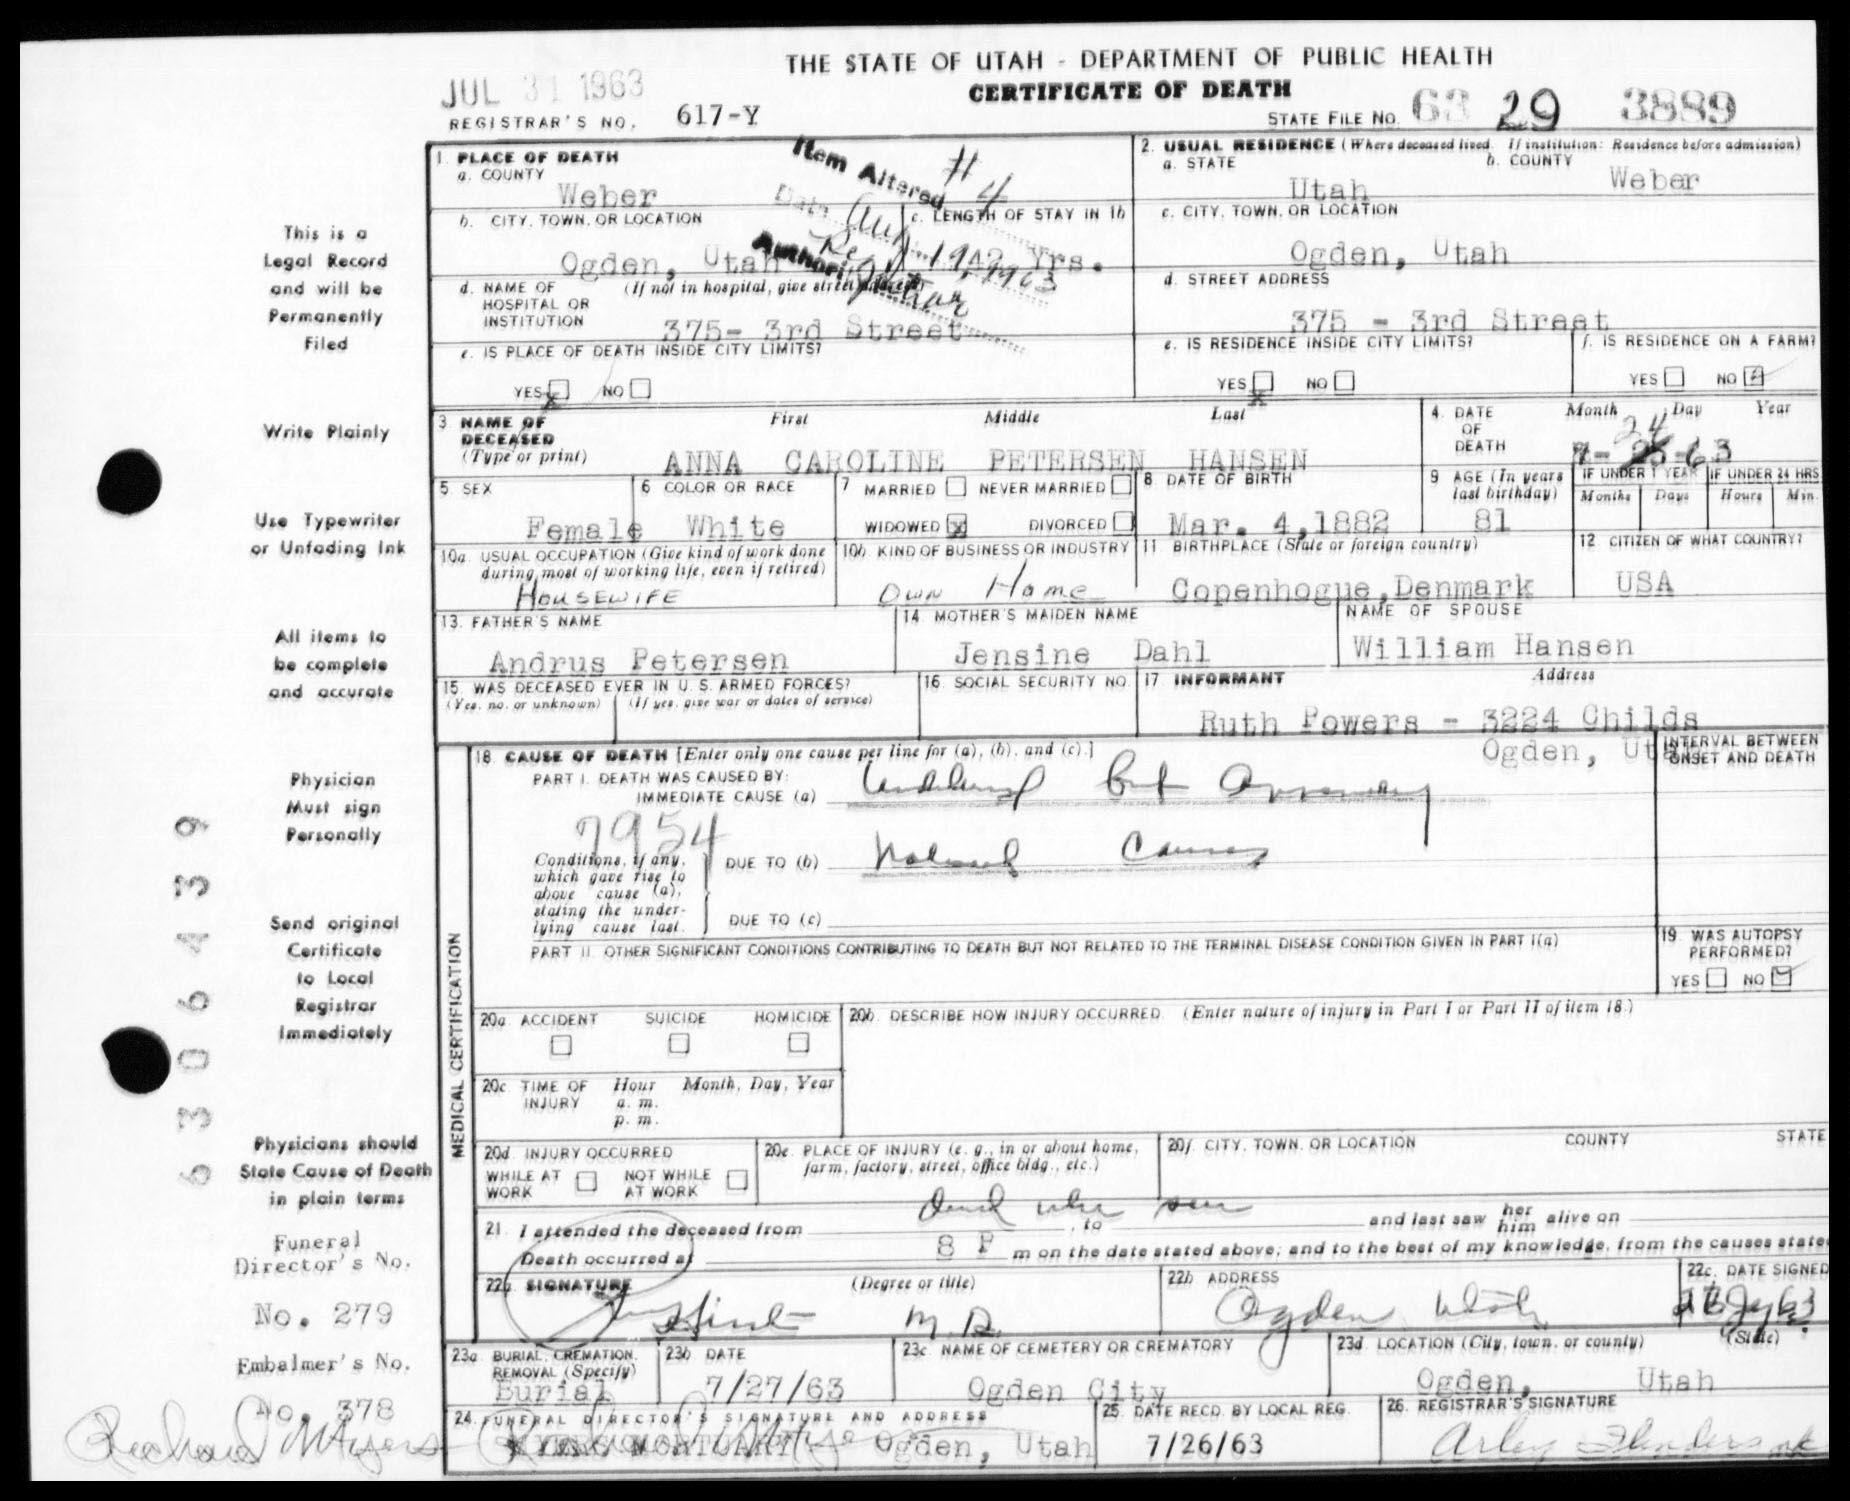 THE STATE OF UTAH - DEPARTMENT OF PUBLIC HEALTH
CERTIFICATE OF DEATH
JUL 31 1963
REGISTRAR'S NO. 617-Y
STATE FILE NO. 63 29 3889
Item Altered #4
Date Aug 1963
Authori
1. PLACE OF DEATH
a. COUNTY
Weber
b. CITY, TOWN, OR LOCATION
Ogden, Utah
c. LENGTH OF STAY IN 1b
Yrs.
d. NAME OF HOSPITAL OR INSTITUTION (If not in hospital, give street address)
375- 3rd Street
e. IS PLACE OF DEATH INSIDE CITY LIMITS?
YES x NO
2. USUAL RESIDENCE (Where deceased lived. If institution: Residence before admission)
a. STATE
Utah
b. COUNTY
Weber
c. CITY, TOWN, OR LOCATION
Ogden, Utah
d. STREET ADDRESS
375 - 3rd Street
e. IS RESIDENCE INSIDE CITY LIMITS?
YES x NO
f. IS RESIDENCE ON A FARM?
YES NO
3. NAME OF DECEASED (Type or print)
First Middle Last
ANNA CAROLINE PETERSEN HANSEN
4. DATE OF DEATH
Month Day Year
7- 24 -63
5. SEX
Female
6. COLOR OR RACE
White
7. MARRIED NEVER MARRIED
WIDOWED x DIVORCED
8. DATE OF BIRTH
Mar. 4, 1882
9. AGE (In years last birthday)
81
IF UNDER 1 YEAR
Months Days
IF UNDER 24 HRS
Hours Min.
10a. USUAL OCCUPATION (Give kind of work done during most of working life, even if retired)
HOUSEWIFE
10b. KIND OF BUSINESS OR INDUSTRY
Own Home
11. BIRTHPLACE (State or foreign country)
Copenhogue, Denmark
12. CITIZEN OF WHAT COUNTRY?
USA
13. FATHER'S NAME
Andrus Petersen
14. MOTHER'S MAIDEN NAME
Jensine Dahl
NAME OF SPOUSE
William Hansen
15. WAS DECEASED EVER IN U. S. ARMED FORCES?
(Yes, no, or unknown) (If yes, give war or dates of service)
16. SOCIAL SECURITY NO.
17. INFORMANT Address
Ruth Powers - 3224 Childs
Ogden, Utah
MEDICAL CERTIFICATION
18. CAUSE OF DEATH [Enter only one cause per line for (a), (b), and (c).]
INTERVAL BETWEEN ONSET AND DEATH
PART I. DEATH WAS CAUSED BY:
IMMEDIATE CAUSE (a) but
7954
Conditions, if any, which gave rise to above cause (a), stating the underlying cause last.
DUE TO (b) Natural Causes
DUE TO (c)
PART II. OTHER SIGNIFICANT CONDITIONS CONTRIBUTING TO DEATH BUT NOT RELATED TO THE TERMINAL DISEASE CONDITION GIVEN IN PART I(a)
19. WAS AUTOPSY PERFORMED?
YES NO
20a. ACCIDENT SUICIDE HOMICIDE
20b. DESCRIBE HOW INJURY OCCURRED. (Enter nature of injury in Part I or Part II of item 18.)
20c. TIME OF INJURY Hour Month, Day, Year
a. m.
p. m.
20d. INJURY OCCURRED
WHILE AT WORK NOT WHILE AT WORK
20e. PLACE OF INJURY (e. g., in or about home, farm, factory, street, office bldg., etc.)
20f. CITY, TOWN, OR LOCATION COUNTY STATE
dead when seen
21. I attended the deceased from , to and last saw her him alive on
Death occurred at 8 P m on the date stated above; and to the best of my knowledge, from the causes state
22a. SIGNATURE (Degree or title)
M.D.
22b. ADDRESS
Ogden Utah
22c. DATE SIGNED
63
23a. BURIAL, CREMATION, REMOVAL (Specify)
Burial
23b. DATE
7/27/63
23c. NAME OF CEMETERY OR CREMATORY
Ogden City
23d. LOCATION (City, town, or county) (State)
Ogden, Utah
24. FUNERAL DIRECTOR'S SIGNATURE AND ADDRESS
MYERS MORTUARY Ogden, Utah
25. DATE RECD. BY LOCAL REG.
7/26/63
26. REGISTRAR'S SIGNATURE
Arley Flinders
This is a
Legal Record
and will be
Permanently
Filed
Write Plainly
Use Typewriter
or Unfading Ink
All items to
be complete
and accurate
Physician
Must sign
Personally
Send original
Certificate
to Local
Registrar
Immediately
Physicians should
State Cause of Death
in plain terms
Funeral
Director's No.
No. 279
Embalmer's No.
No. 378
Richard Myers